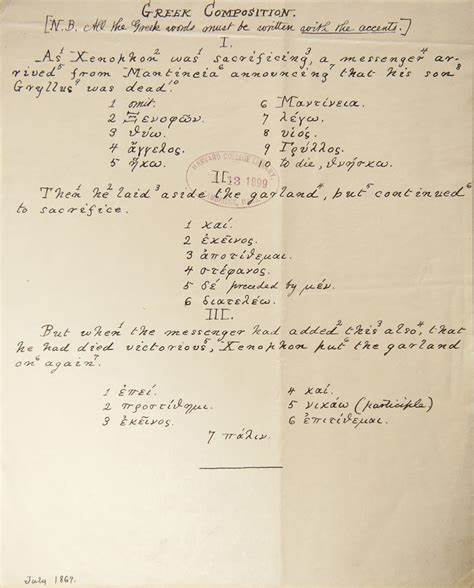 GREEK COMPOSITION.
[N.B. All the Greek words must be written with the accents.]
I.
As¹ Xenophon² was sacrificing,³ a messenger⁴ ar-
rived⁵ from Mantineia⁶ announcing⁷ that his son⁸
Gryllus⁹ was dead.¹⁰
1 omit. 6 Μαντίνεια.
2 Ξενοφῶν. 7 λέγω.
3 θύω. 8 υἱός.
4 ἄγγελος. 9 Γρύλλος.
5 ἥκω. 10 to die, θνήσκω.
HARVARD COLLEGE LIBRARY
13 1899
II.
Then¹ he² laid³ aside the garland⁴, but⁵ continued⁶
to sacrifice.
1 καί.
2 ἐκεῖνος.
3 ἀποτίθεμαι.
4 στέφανος.
5 δέ preceded by μέν.
6 διατελέω.
III.
But when¹ the messenger had added² this³ also⁴, that
he had died victorious,⁵ Xenophon put⁶ the garland
on⁶ again⁷.
1 ἐπεί. 4 καί.
2 προστίθημι. 5 νικάω (participle)
3 ἐκεῖνος. 6 ἐπιτίθεμαι.
7 πάλιν.
July 1869.